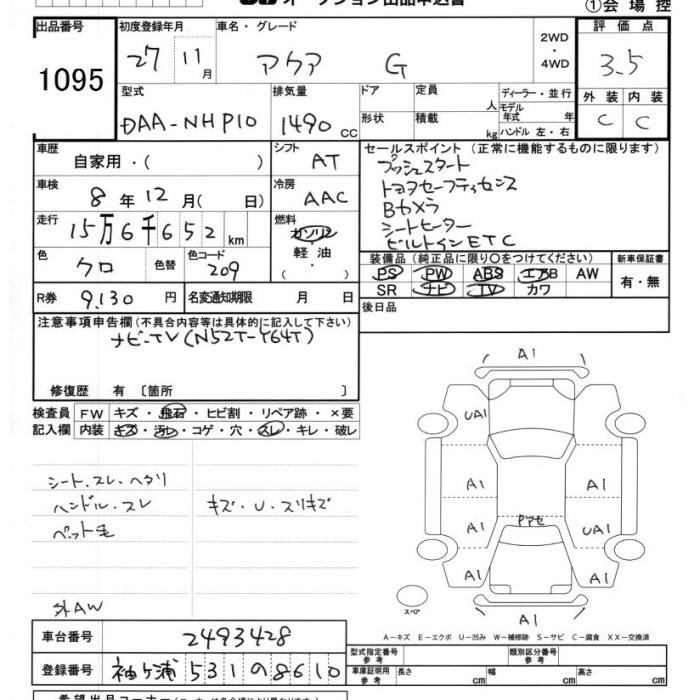 オークション出品申込書
①会場控
出品番号 1095
初度登録年月 27 11月
車名・グレード アクア G
2WD・4WD
評価点 3.5
外装 内装
C C
型式 DAA-NHP10
排気量 1490 CC
ドア 形状
定員 人
積載 kg
ディーラー・並行
モデル年式 年
ハンドル 左・右
車歴 自家用・( )
シフト AT
車検 8年12月( 日)
冷房 AAC
走行 15万6千652km
燃料 ガソリン 軽油 ( ・ )
色 クロ 色替 色コード 209
R券 9,130円 名変通知期限 月 日
セールスポイント(正常に機能するものに限ります)
プッシュスタート
トヨタセーフティセンス
Bカメラ
シートヒーター
ビルトインETC
装備品(純正品に限り○をつけてください) 新車保証書
PS PW ABS エアB AW 有・無
SR ナビ TV カワ
後日品
注意事項申告欄(不具合内容等は具体的に記入して下さい)
ナビ-TV(N52T-Y64T)
修復歴 有〔箇所 〕
検査員記入欄
FW キズ・飛石・ヒビ割・リペア跡・×要
内装 キズ・汚レ・コゲ・穴・スレ・キレ・破レ
シート.スレ.ヘタリ
ハンドル.スレ キズ・U・スリキズ
ペット毛
外AW
A1
UA1
A1 A1
A1 UA1
A1 A1
A1
スペア
A-キズ E-エクボ U-凹み W-補修跡 S-サビ C-腐食 XX-交換済
車台番号 2493428
登録番号 袖ヶ浦 531 の 8610
型式指定番号 参考
類別区分番号 参考
車庫証明用 参考 長さ cm 幅 cm 高さ cm